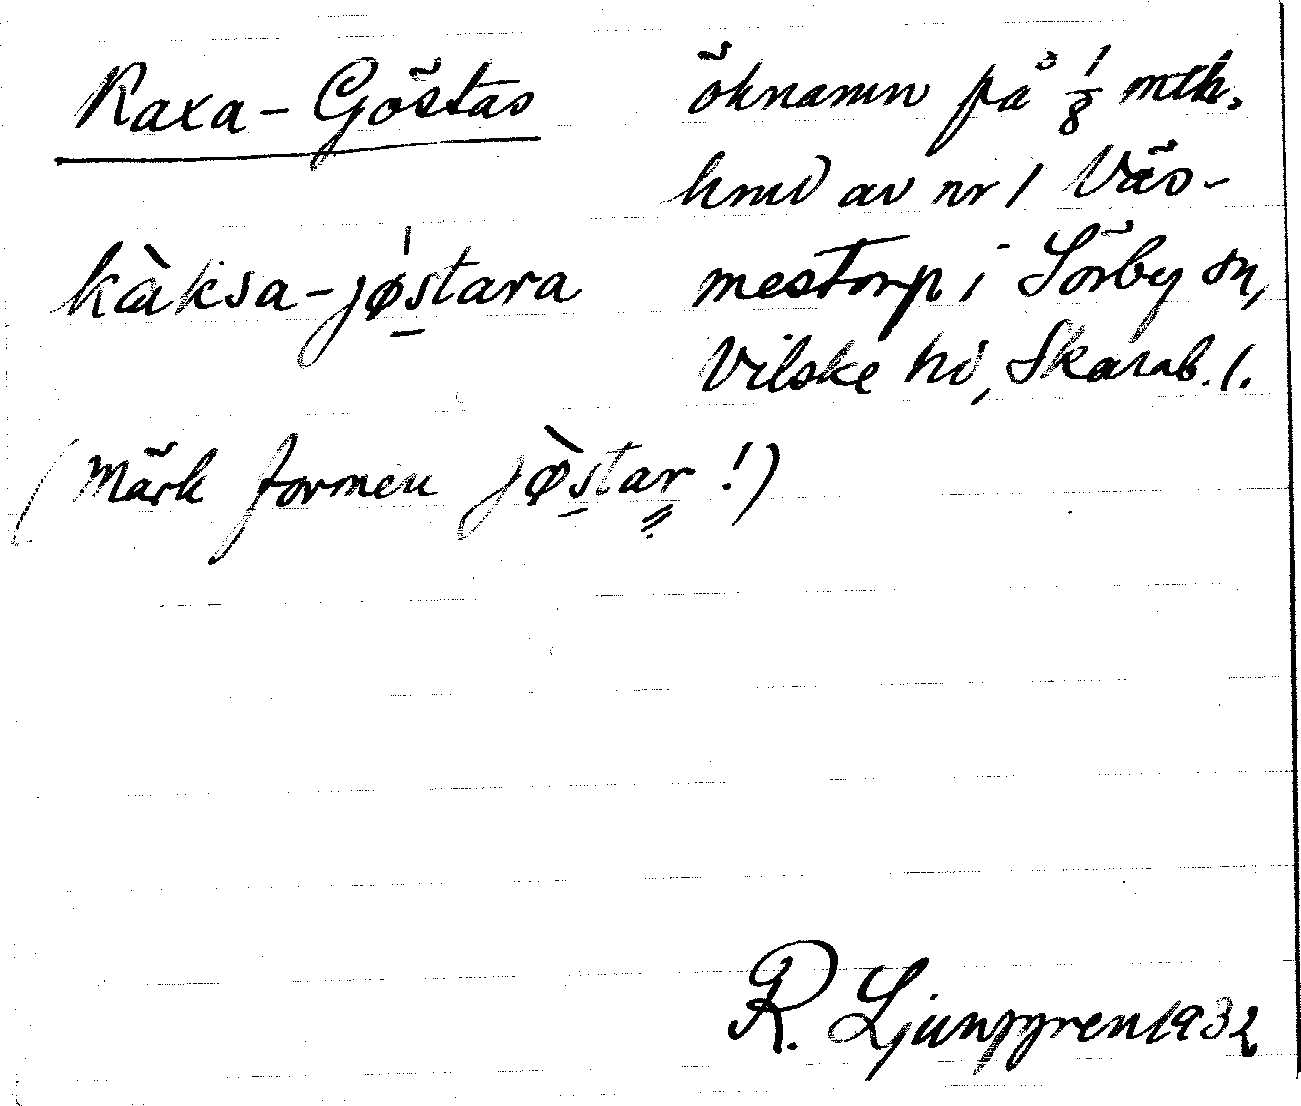 Kaxa-Göstas
öknamn på 1/8 mtl.
hmd av nr 1 Väs-
kàksa-jøstara
mestorp i Sörby sn,
Vilske hd, Skarab. l.
(Märk formen jøstar!)
R. Ljunggren 1932